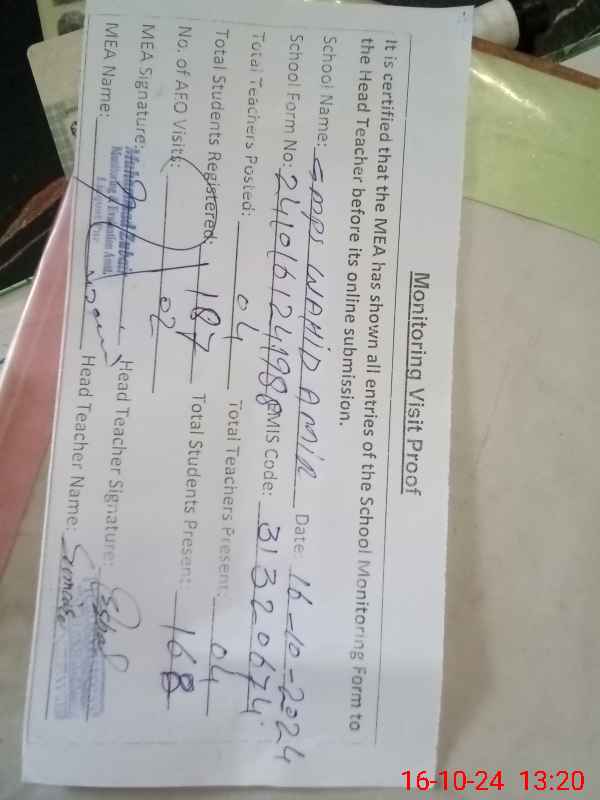 Monitoring Visit Proof
It is certified that the MEA has shown all entries of the School Monitoring Form to
the Head Teacher before its online submission.
School Name: GMPS WAHID AMIR Date: 16-10-2024
School Form No: 2410161241988 EMIS Code: 31320674
Total Teachers Posted: 04 Total Teachers Present: 04
Total Students Registered: 187 Total Students Present: 168
No. of AEO Visits: 02
MEA Signature: Head Teacher Signature:
MEA Name: Head Teacher Name:
Monitoring & Evaluation Asstt.
16-10-24 13:20